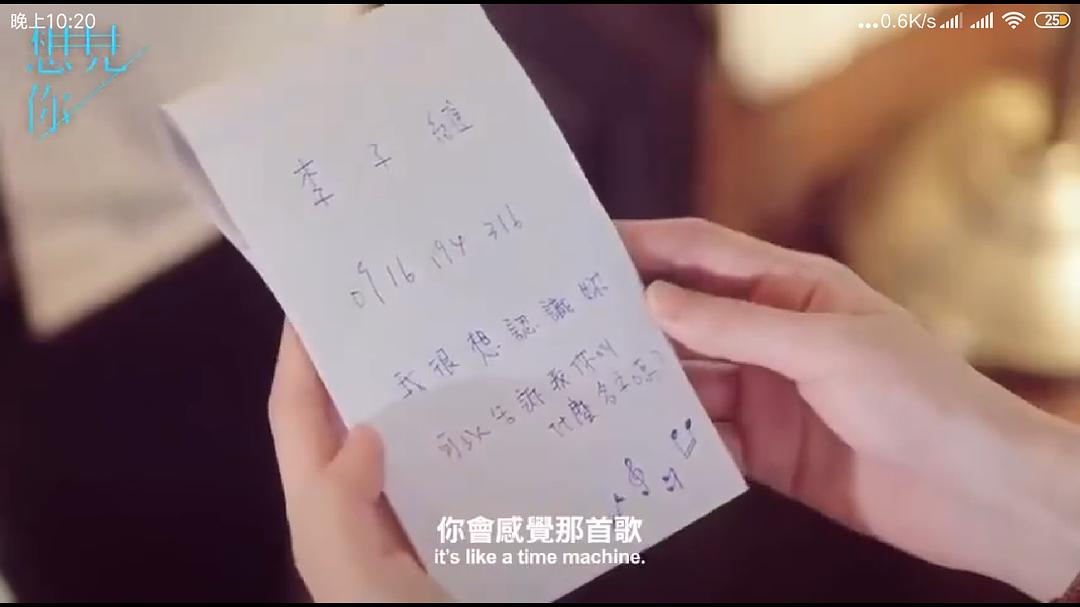 晚上10:20
...0.6K/s
25
想見
你
李子維
0916 194 316
我很想認識妳
可以告訴我你叫
什麼名字嗎?
你會感覺那首歌
it's like a time machine.